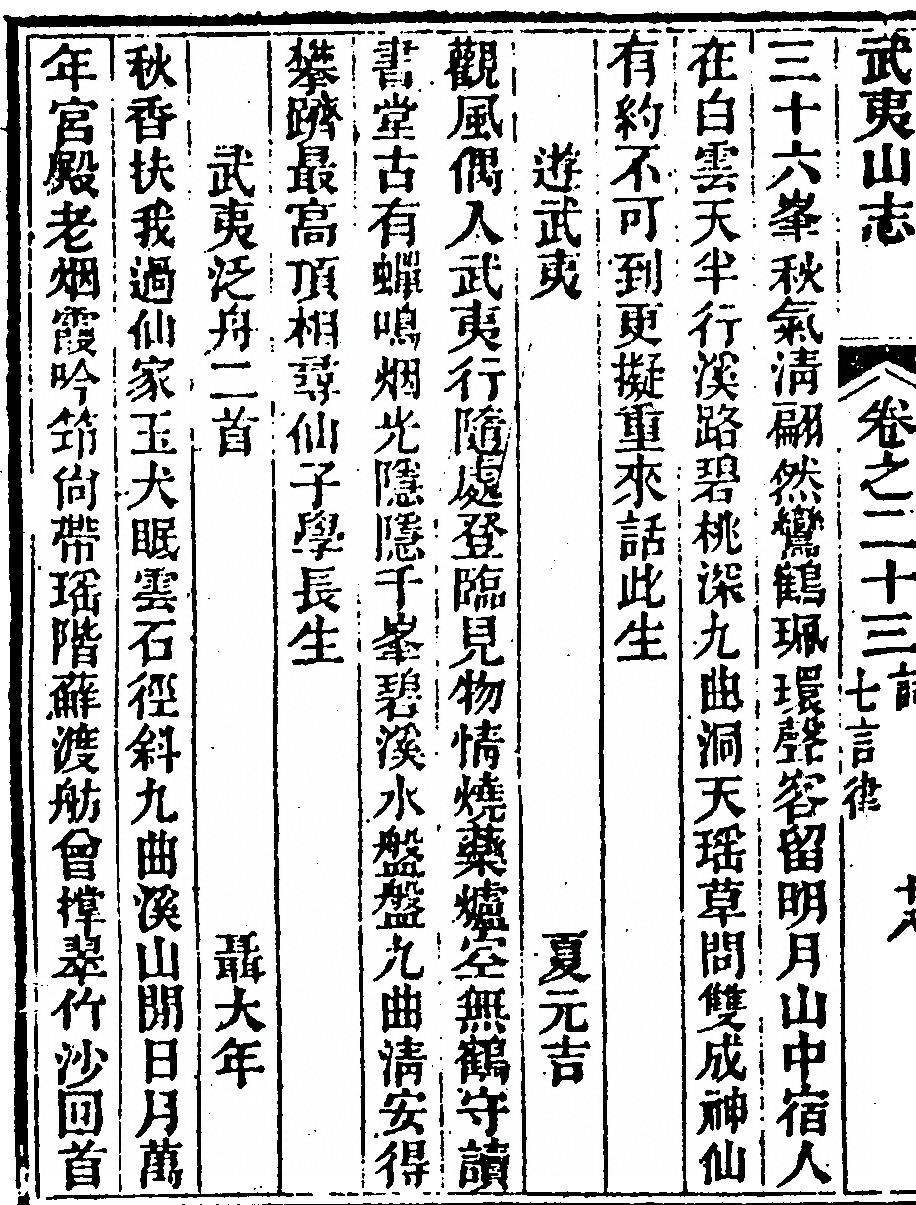 武夷山志
卷之二十三
七言律
三十六峯秋氣淸翩然鸞鶴珮環聲客留明月山中宿人
在白雲天半行溪路碧桃深九曲洞天瑶草問雙成神仙
有約不可到更擬重來話此生
遊武夷
夏元吉
觀風偶入武夷行隨處登臨見物情燒藥爐空無鶴守讀
書堂古有蟬鳴烟光隱隱千峯碧溪水盤盤九曲淸安得
攀躋最高頂相尋仙子學長生
武夷泛舟二首
聶大年
秋香扶我過仙家玉犬眠雲石徑斜九曲溪山開日月萬
年宮殿老烟霞吟筇尙帶瑶階蘚渡舫曾撑翠竹沙回首